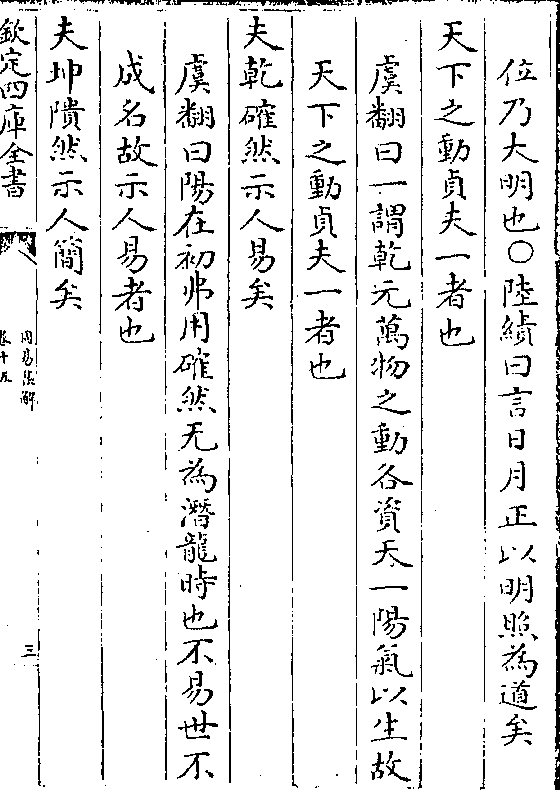 位乃大明也○陸績曰言日月正以明照為道矣
天下之動貞夫一者也
虞翻曰一謂乾元萬物之動各資天一陽氣以生故
天下之動貞夫一者也
夫乾確然示人易矣
虞翻曰陽在初弗用確然无為潛龍時也不易世不
成名故示人易者也
夫坤隤然示人簡矣
欽定四庫全書
周易集解
卷十五
三